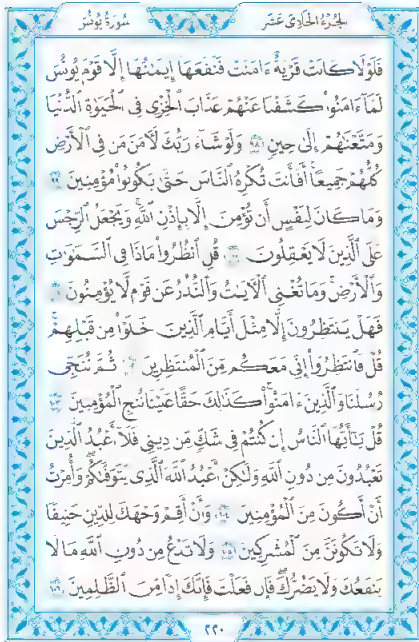 الجزء الحادي عشر
سورة يونس
فَلَوْلَا كَانَتْ قَرْيَةٌ ءَامَنَتْ فَنَفَعَهَآ إِيمَٰنُهَآ إِلَّا قَوْمَ يُونُسَ
لَمَّآ ءَامَنُوا۟ كَشَفْنَا عَنْهُمْ عَذَابَ ٱلْخِزْىِ فِى ٱلْحَيَوٰةِ ٱلدُّنْيَا
وَمَتَّعْنَٰهُمْ إِلَىٰ حِينٍ ٩٨ وَلَوْ شَآءَ رَبُّكَ لَءَامَنَ مَن فِى ٱلْأَرْضِ
كُلُّهُمْ جَمِيعًا أَفَأَنتَ تُكْرِهُ ٱلنَّاسَ حَتَّىٰ يَكُونُوا۟ مُؤْمِنِينَ ٩٩
وَمَا كَانَ لِنَفْسٍ أَن تُؤْمِنَ إِلَّا بِإِذْنِ ٱللَّهِ وَيَجْعَلُ ٱلرِّجْسَ
عَلَى ٱلَّذِينَ لَا يَعْقِلُونَ ١٠٠ قُلِ ٱنظُرُوا۟ مَاذَا فِى ٱلسَّمَٰوَٰتِ
وَٱلْأَرْضِ وَمَا تُغْنِى ٱلْءَايَٰتُ وَٱلنُّذُرُ عَن قَوْمٍ لَّا يُؤْمِنُونَ ١٠١
فَهَلْ يَنتَظِرُونَ إِلَّا مِثْلَ أَيَّامِ ٱلَّذِينَ خَلَوْا۟ مِن قَبْلِهِمْ
قُلْ فَٱنتَظِرُوٓا۟ إِنِّى مَعَكُم مِّنَ ٱلْمُنتَظِرِينَ ١٠٢ ثُمَّ نُنَجِّى
رُسُلَنَا وَٱلَّذِينَ ءَامَنُوا۟ كَذَٰلِكَ حَقًّا عَلَيْنَا نُنجِ ٱلْمُؤْمِنِينَ ١٠٣
قُلْ يَٰٓأَيُّهَا ٱلنَّاسُ إِن كُنتُمْ فِى شَكٍّ مِّن دِينِى فَلَآ أَعْبُدُ ٱلَّذِينَ
تَعْبُدُونَ مِن دُونِ ٱللَّهِ وَلَٰكِنْ أَعْبُدُ ٱللَّهَ ٱلَّذِى يَتَوَفَّىٰكُمْ وَأُمِرْتُ
أَنْ أَكُونَ مِنَ ٱلْمُؤْمِنِينَ ١٠٤ وَأَنْ أَقِمْ وَجْهَكَ لِلدِّينِ حَنِيفًا
وَلَا تَكُونَنَّ مِنَ ٱلْمُشْرِكِينَ ١٠٥ وَلَا تَدْعُ مِن دُونِ ٱللَّهِ مَا لَا
يَنفَعُكَ وَلَا يَضُرُّكَ فَإِن فَعَلْتَ فَإِنَّكَ إِذًا مِّنَ ٱلظَّٰلِمِينَ ١٠٦
٢٢٠